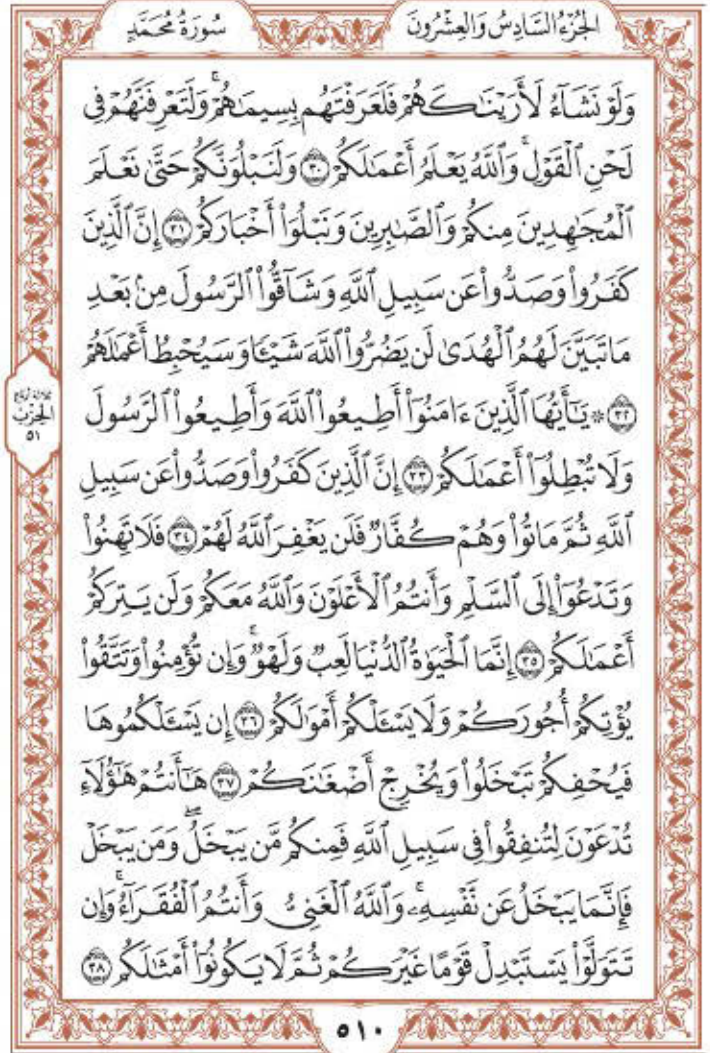 الجُزْءُ السَّادِسُ وَالعِشْرُونَ
سُورَةُ مُحَمَّدٍ
وَلَوْ نَشَآءُ لَأَرَيْنَٰكَهُمْ فَلَعَرَفْتَهُم بِسِيمَٰهُمْ ۚ وَلَتَعْرِفَنَّهُمْ فِى
لَحْنِ ٱلْقَوْلِ ۚ وَٱللَّهُ يَعْلَمُ أَعْمَٰلَكُمْ ٣٠ وَلَنَبْلُوَنَّكُمْ حَتَّىٰ نَعْلَمَ
ٱلْمُجَٰهِدِينَ مِنكُمْ وَٱلصَّٰبِرِينَ وَنَبْلُوَا۟ أَخْبَارَكُمْ ٣١ إِنَّ ٱلَّذِينَ
كَفَرُوا۟ وَصَدُّوا۟ عَن سَبِيلِ ٱللَّهِ وَشَآقُّوا۟ ٱلرَّسُولَ مِنۢ بَعْدِ
مَا تَبَيَّنَ لَهُمُ ٱلْهُدَىٰ لَن يَضُرُّوا۟ ٱللَّهَ شَيْـًٔا وَسَيُحْبِطُ أَعْمَٰلَهُمْ
٣٢ ۞ يَٰٓأَيُّهَا ٱلَّذِينَ ءَامَنُوٓا۟ أَطِيعُوا۟ ٱللَّهَ وَأَطِيعُوا۟ ٱلرَّسُولَ
وَلَا تُبْطِلُوٓا۟ أَعْمَٰلَكُمْ ٣٣ إِنَّ ٱلَّذِينَ كَفَرُوا۟ وَصَدُّوا۟ عَن سَبِيلِ
ٱللَّهِ ثُمَّ مَاتُوا۟ وَهُمْ كُفَّارٌ فَلَن يَغْفِرَ ٱللَّهُ لَهُمْ ٣٤ فَلَا تَهِنُوا۟
وَتَدْعُوٓا۟ إِلَى ٱلسَّلْمِ وَأَنتُمُ ٱلْأَعْلَوْنَ وَٱللَّهُ مَعَكُمْ وَلَن يَتِرَكُمْ
أَعْمَٰلَكُمْ ٣٥ إِنَّمَا ٱلْحَيَوٰةُ ٱلدُّنْيَا لَعِبٌ وَلَهْوٌ ۚ وَإِن تُؤْمِنُوا۟ وَتَتَّقُوا۟
يُؤْتِكُمْ أُجُورَكُمْ وَلَا يَسْـَٔلْكُمْ أَمْوَٰلَكُمْ ٣٦ إِن يَسْـَٔلْكُمُوهَا
فَيُحْفِكُمْ تَبْخَلُوا۟ وَيُخْرِجْ أَضْغَٰنَكُمْ ٣٧ هَٰٓأَنتُمْ هَٰٓؤُلَآءِ
تُدْعَوْنَ لِتُنفِقُوا۟ فِى سَبِيلِ ٱللَّهِ فَمِنكُم مَّن يَبْخَلُ ۖ وَمَن يَبْخَلْ
فَإِنَّمَا يَبْخَلُ عَن نَّفْسِهِۦ ۚ وَٱللَّهُ ٱلْغَنِىُّ وَأَنتُمُ ٱلْفُقَرَآءُ ۚ وَإِن
تَتَوَلَّوْا۟ يَسْتَبْدِلْ قَوْمًا غَيْرَكُمْ ثُمَّ لَا يَكُونُوٓا۟ أَمْثَٰلَكُم ٣٨
ثلاثة أرباع
الحِزْبِ
٥١
٥١٠